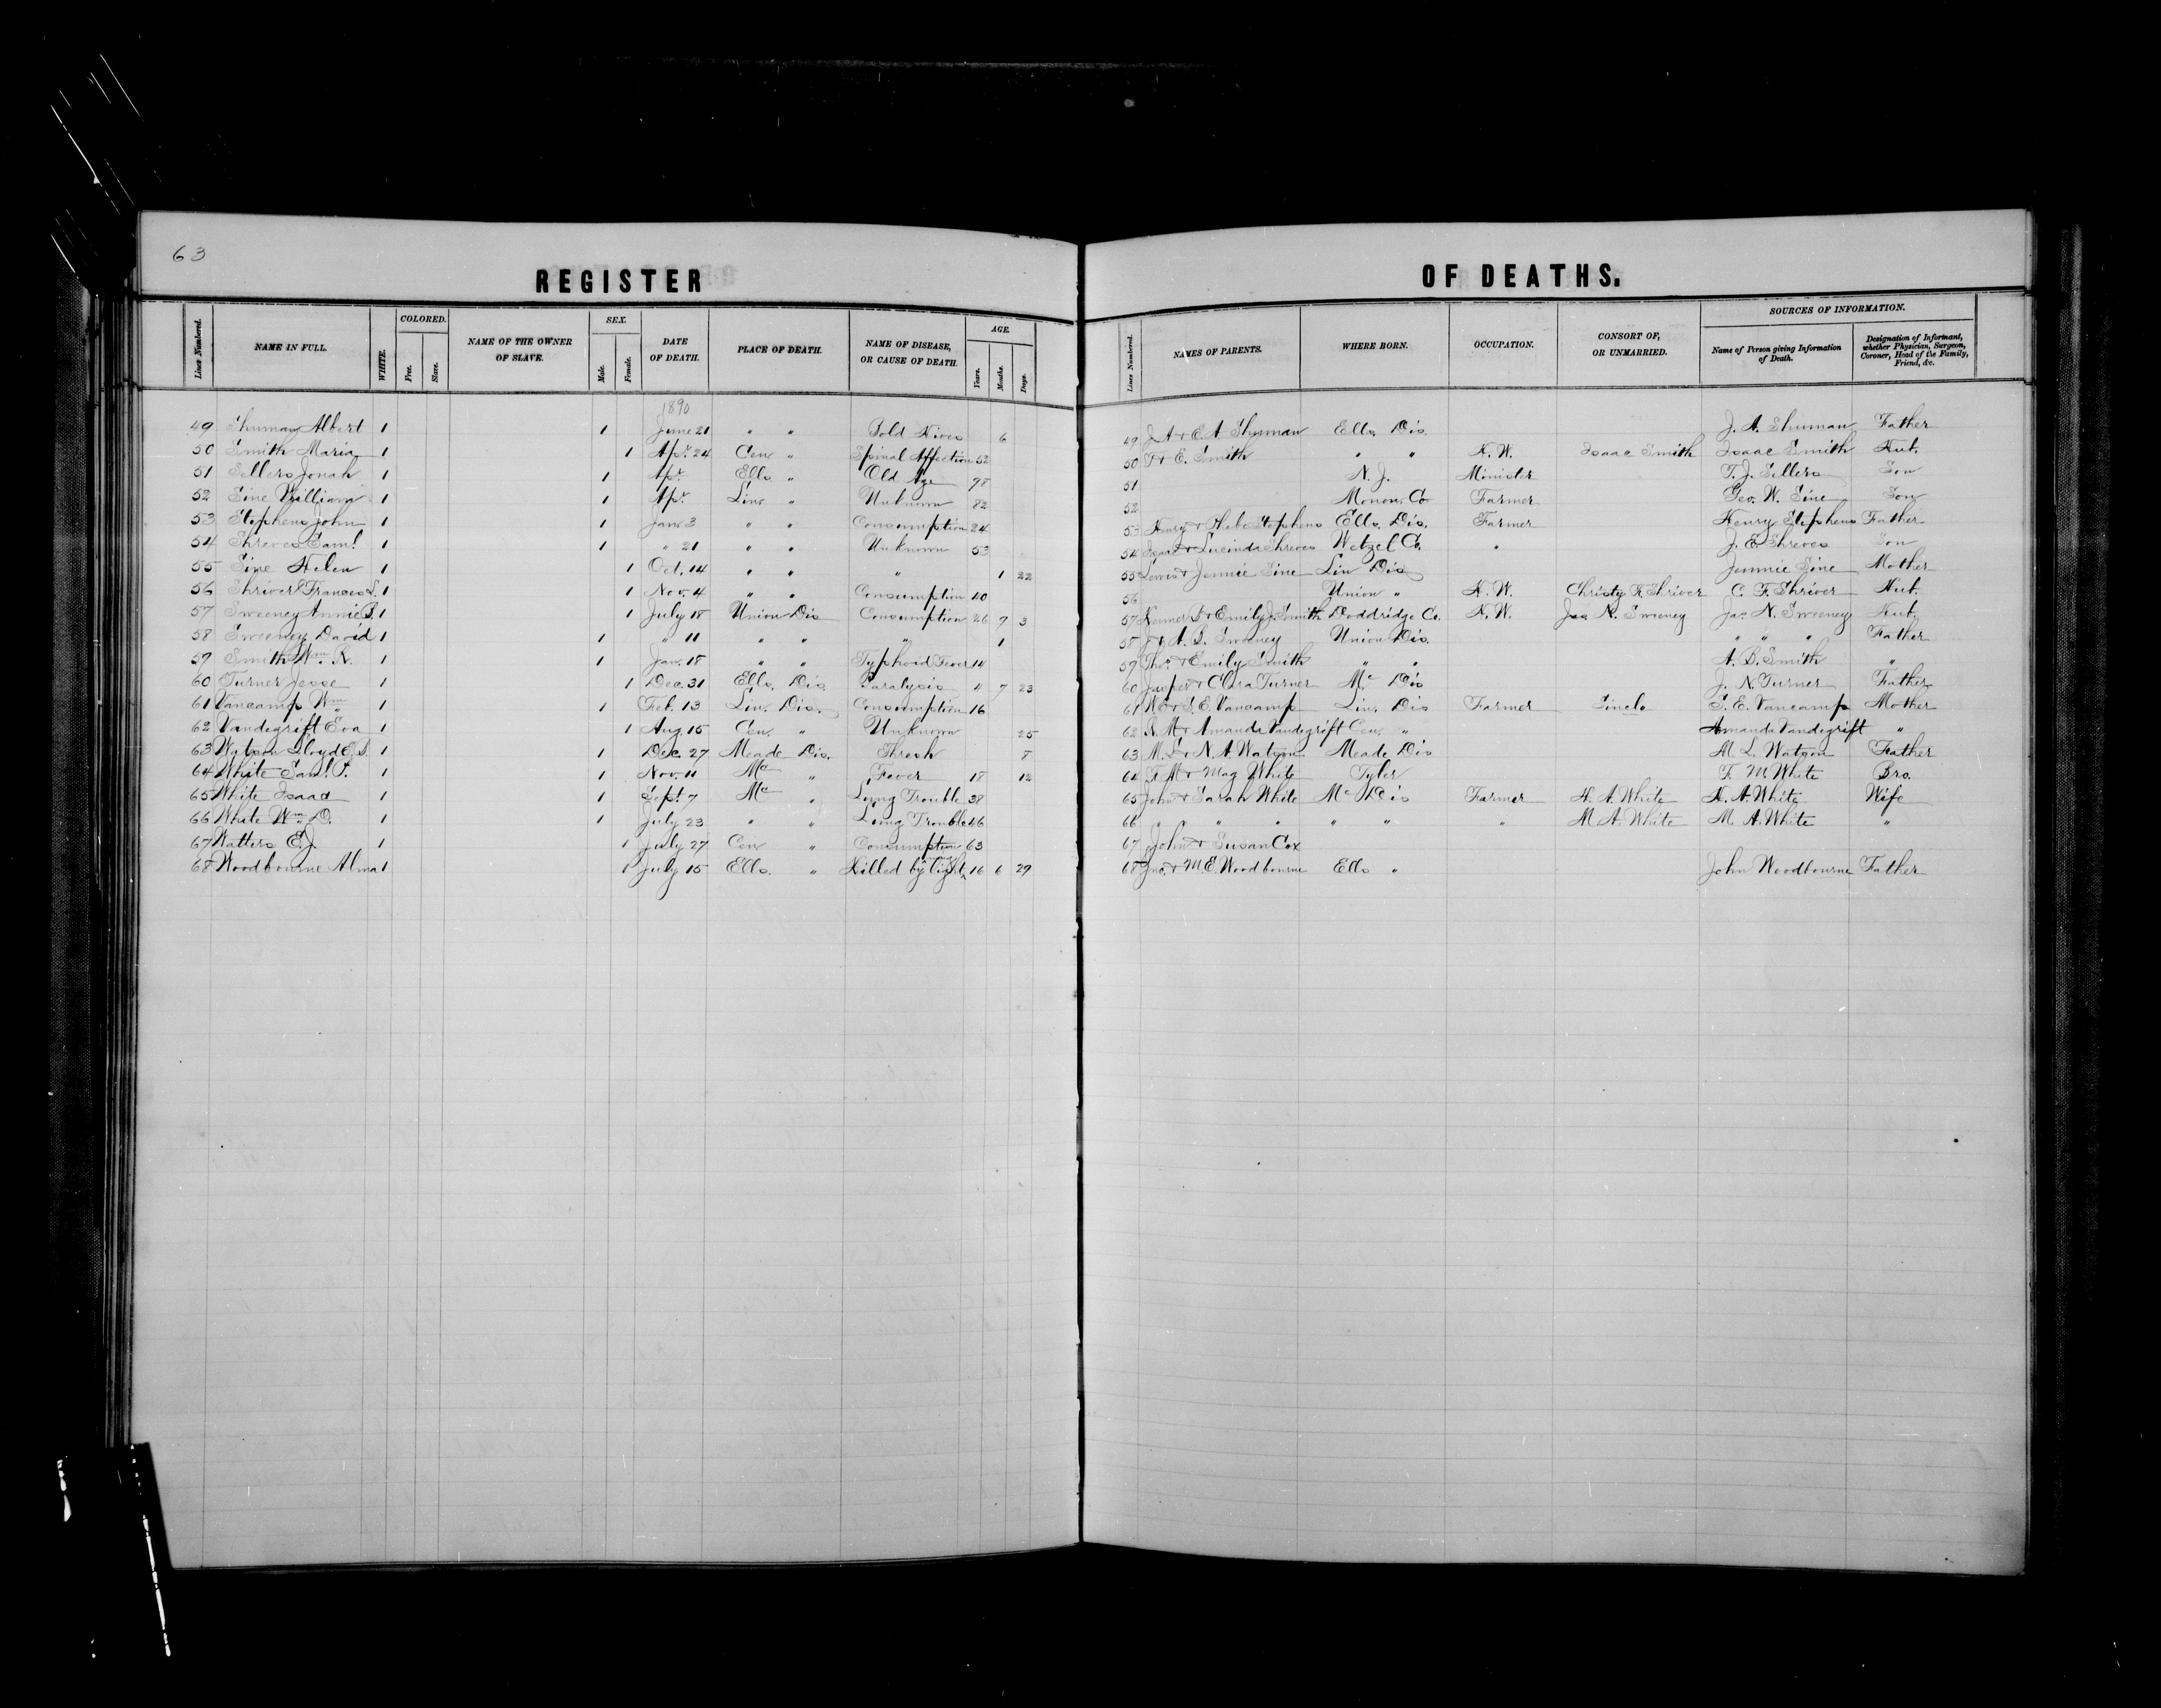 63
REGISTER OF DEATHS.
Lines Numbered. NAME IN FULL. WHITE. COLORED. Free. Slave. NAME OF THE OWNER OF SLAVE. SEX. Male. Female. DATE OF DEATH. PLACE OF DEATH. NAME OF DISEASE, OR CAUSE OF DEATH. AGE. Years. Months. Days. Lines Numbered. NAMES OF PARENTS. WHERE BORN. OCCUPATION. CONSORT OF, OR UNMARRIED. SOURCES OF INFORMATION. Name of Person giving Information of Death. Designation of Informant, whether Physician, Surgeon, Coroner, Head of the Family, Friend, &c.
1890
49 Shuman Albert 1 1 June 21 " " Bold Hives 6 49 J A & E A Shuman Ells. Dis. J. A. Shuman Father
50 Smith Maria 1 1 Apr. 24 Cen. " Spinal Affection 52 50 & E. Smith " " H. W. Isaac Smith Isaac Smith Hub.
51 Sellers Jonah 1 1 Apr. Ells " Old Age 98 51 N. J. Minister T. J. Sellers Son
52 Sine William 1 1 Apr. Lin. " Unknown 82 52 Monon. Co Farmer Geo. W. Sine Son
53 Stephens John 1 1 Jan. 3 " " Consumption 24 53 Henry & Stephens Ells. Dis. Farmer Henry Stephens Father
54 Shreves Saml. 1 1 " 21 " " Unknown 53 54 Isaac & Lucinda Shreves Wetzel Co. " J. E. Shreves Son
55 Sine Helen 1 1 Oct. 14 " " " 1 22 55 Lewis & Jennie Sine Lin Dis Jennie Sine Mother
56 Shriver Frances L. 1 1 Nov. 4 " " Consumption 40 56 Union " H. W. Christy F. Shriver C. F. Shriver Hub.
57 Sweeney Annie B. 1 1 July 18 Union Dis Consumption 26 7 3 57 & Emily J. Smith Doddridge Co. H. W. Jas. N. Sweeney Jas. N. Sweeney Hub.
58 Sweeney David 1 1 " 11 " " " 1 58 J & A. B. Sweeney Union Dis. " " " Father
59 Smith Wm. R. 1 1 Jan. 18 " " Typhoid Fever 14 59 Tho. & Emily Smith " " A. B. Smith "
60 Turner Jesse 1 1 Dec. 31 Ells. Dis. Paralysis 4 7 23 60 Jasper & Clara Turner Mc Dis J. N. Turner Father
61 Vancamp Wm 1 1 Feb. 13 Lin. Dis. Consumption 16 61 & S. E. Vancamp Lin. Dis Farmer Single S. E. Vancamp Mother
62 Vandegrift Eva 1 1 Aug. 15 Cen. " Unknown 25 62 R. M. & Amanda Vandegrift Cen. " Amanda Vandegrift "
63 Watson Lloyd 1 1 Dec. 27 Meade Dis. Thresh 8 63 M. L & N. A. Watson Meade Dis M L. Watson Father
64 White Saml. T. 1 1 Nov. 11 Mc " Fever 18 12 64 F. M & Mag White Tyler F. M White Bro.
65 White Isaac 1 1 Sept. 7 Mc " Lung Trouble 38 65 John & Sarah White Mc Dis Farmer H. A. White H. A. White Wife
66 White Wm. D. 1 1 July 23 " " Lung Trouble 46 66 " " " " " " M A. White M A. White "
67 Watters E. J. 1 1 July 27 Cen " Consumption 63 67 John & Susan Cox
68 Woodbourne Alma 1 1 July 15 Ells. " Killed by Light. 16 6 29 68 Jno. & M. E. Woodbourne Ells " John Woodbourne Father